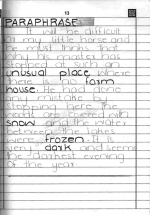 13
PARAPHRASE
It will be difficult
of my little horse and
he must thinks that
why his master has
stopped at such an
unusual place where
there is no farm
house. He had done
any mistake by
stopping here the
woods are covered with
snow and the water
between the lakes
were frozen. It is
very dark and seems
the darkest evening
of the year.